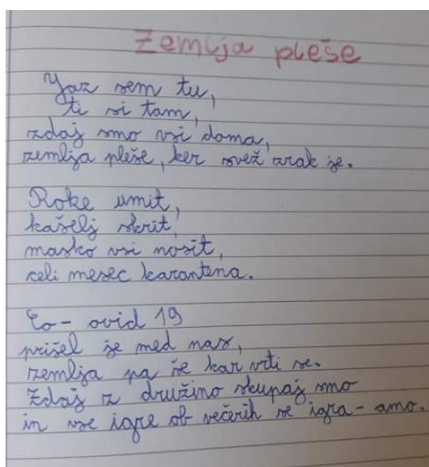 Zemlja pleše
Jaz sem tu,
ti si tam,
zdaj smo vsi doma,
zemlja pleše, ker svež zrak je.
Roke umit,
kašelj skrit,
masko vsi nosit,
celi mesec karantena.
Co - ovid 19
prišel je med nas,
zemlja pa še kar vrti se.
Zdaj z družino skupaj smo
in vse igre ob večerih se igra - amo.